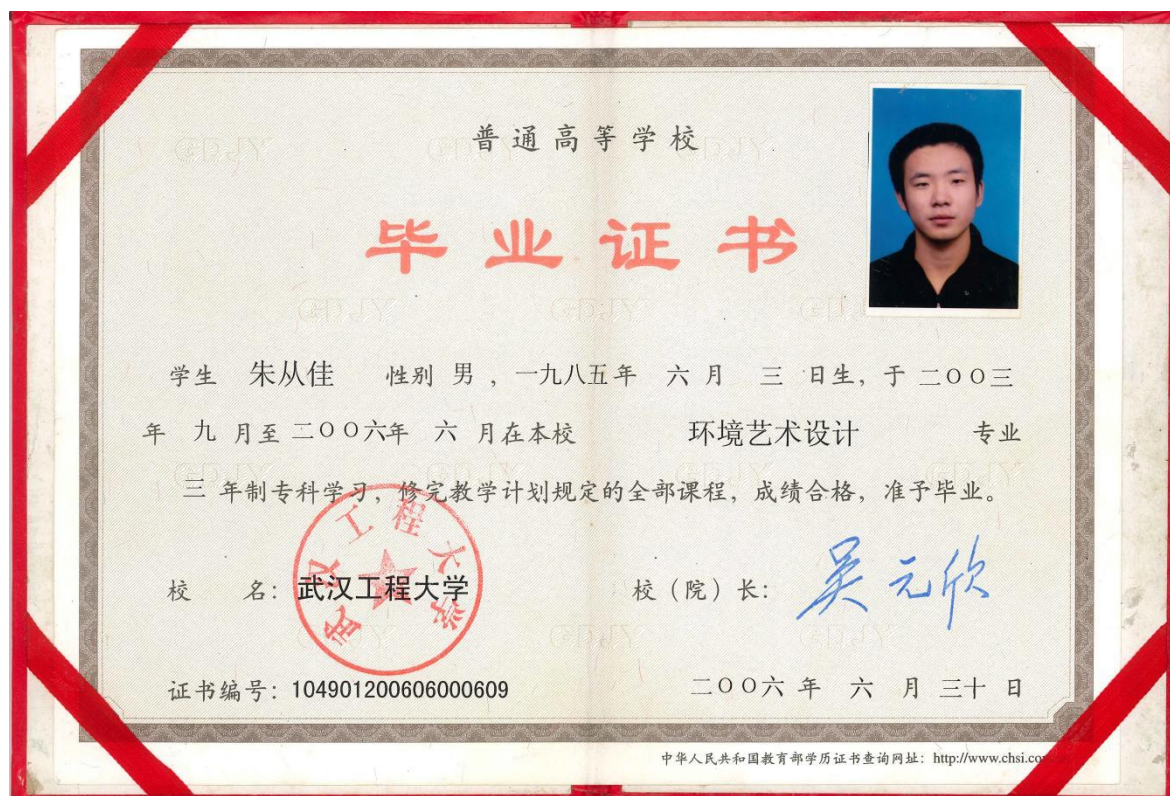 普通高等学校
毕业证书
学生 朱从佳 性别 男 ，一九八五年 六 月 三 日生，于 二〇〇三
年 九 月至 二〇〇六年 六 月在本校 环境艺术设计 专业
三 年制专科学习，修完教学计划规定的全部课程，成绩合格，准予毕业。
校 名：武汉工程大学 校（院）长：吴元欣
武汉工程大学
证书编号：104901200606000609 二〇〇六 年 六 月 三十 日
中华人民共和国教育部学历证书查询网址：http://www.chsi.co